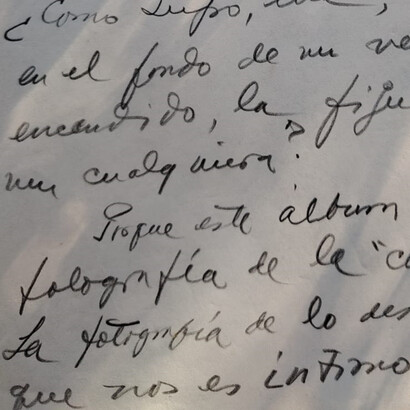 ¿Cómo supo,
en el fondo de un ve
encendido, la figu
un cualquiera?
Porque este álbum
fotografía de la "c
La fotografía de lo des
que nos es íntimo